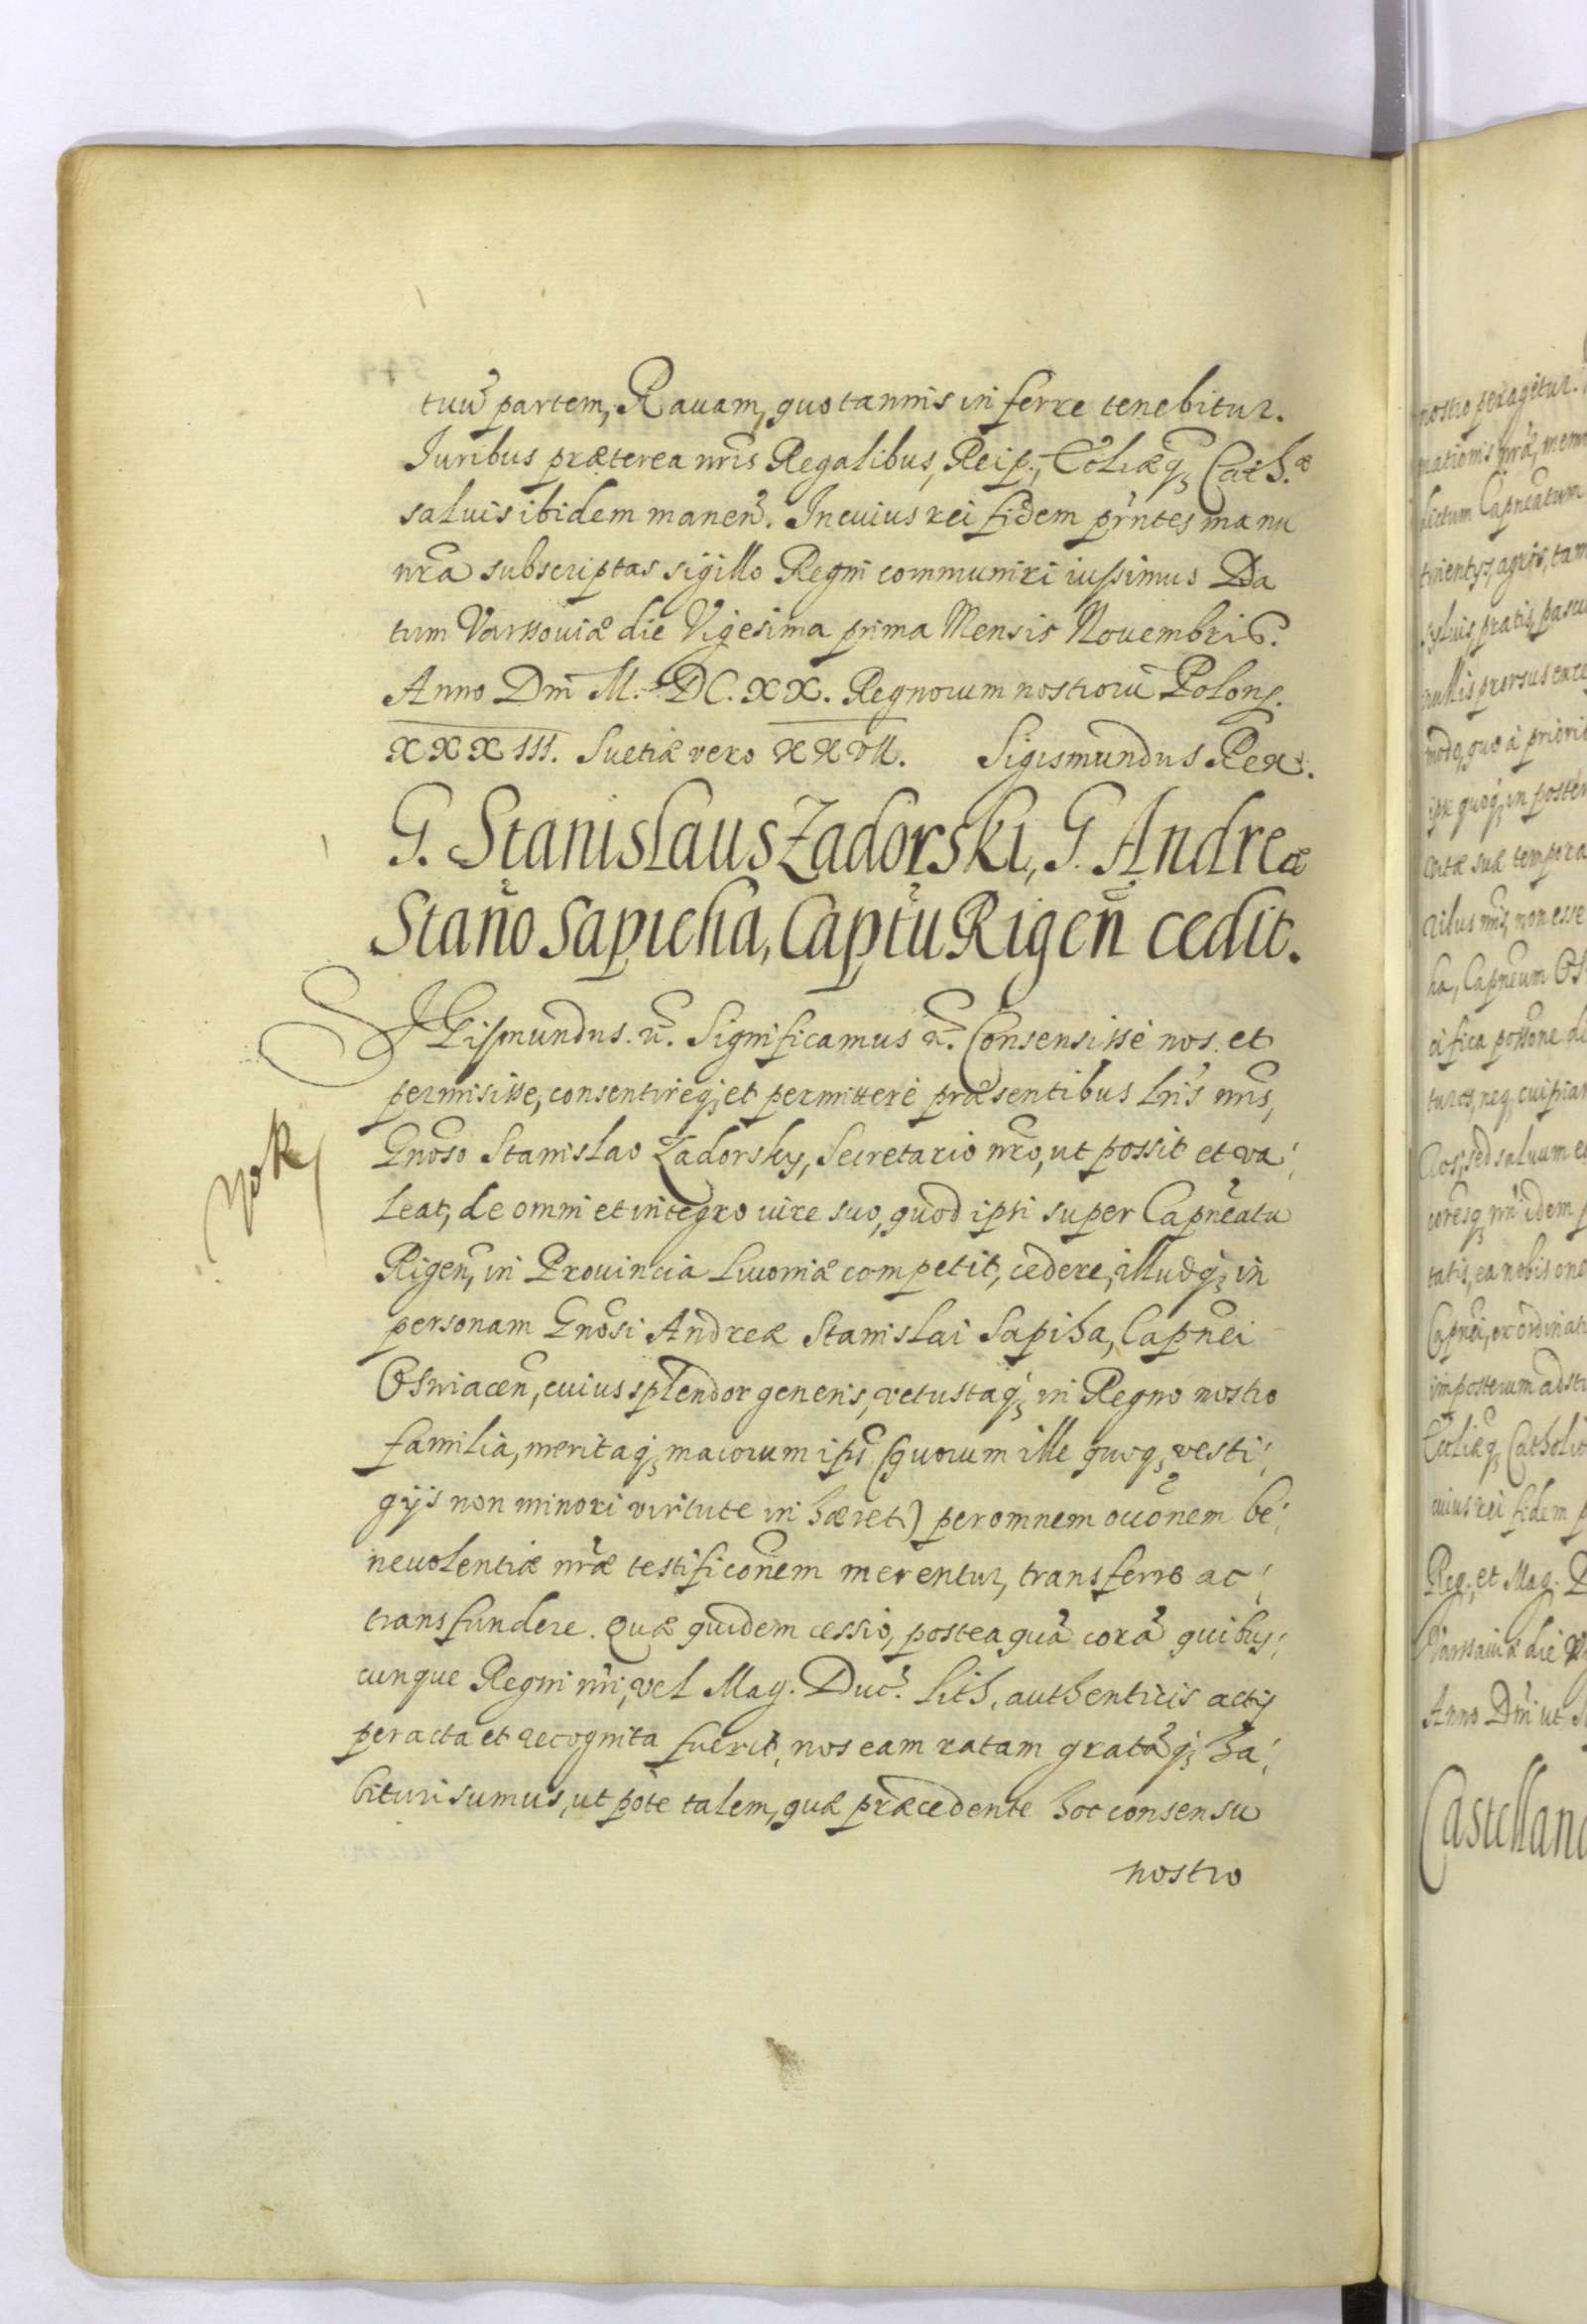 tuũ partem, Rauam, quotannis inferre tenebitur.
Juribus præterea nr̃is Regalibus, Reip:, Eccl̃iæq; Cath.æ
saluis ibidem manen̄. In cuius rei fidem pr̃ntes manu
nr̃a subscriptas sigillo Regni communiri iussimus Da
tum Varssouiæ die Vigesima prima Mensis Nouembris.
Anno Dnĩ M. DC. XX. Regnorum nostrorũ Polonę.
XXXIII. Suetiæ vero XXVII. Sigismundus Rex.
G. Stanislaus Zadorski, G. Andreæ
Stañ̃o Sapieha, Cap̃tũ Rigen̄ cedit.
SIGismundus. &c̃. Significamus &c̃. Consensisse nos et
permisisse, consentireq; et permittere præsentibus Lr̃is nr̃is,
Gnõso Stanislao Zadorsky, Secretario nr̃o, ut possit et va
leat, de omni et integro iure suo, quod ipsi super Capnẽatu
Rigen̄, in Prouincia Liuoniæ competit, cedere, illudq; in
personam Gnõsi Andreæ Stanislai Sapiha, Capnẽi
Oswiacen̄, cuius splendor generis, vetustaq; in Regno nostro
familia, meritaq; maiorum ips̃ (quorum ille quoq; vesti
gijs non minori virtute inhæret) per omnem occõnem be
neuolentiæ nr̃æ testificõnem merentur, transferre ac
transfundere. Quæ quidem cessio, posteaquã corã quibus
cunque Regni nr̃i, vel Mag. Duc̃. Lith. authenticis actis
peracta et recognita fuerit, nos eam ratam gratãq; ha
bituri sumus, ut pote talem, quæ præcedente hoc consensu
nostro
nostro peragetur.
nr̃a, mem
dictum Capnẽatum
agris, tam
syluis, pratis, pascu
nullis prorsus exce
modo, quo à priori
ipse quoq; in poster
vitæ suæ tempora
nr̃is, non esse
ha, Capnẽum Os
neq; cuipiam
sed saluum e
idem p
tatis, ea nobis one
Capnẽi, ex ordinati
imposterum adstr
Eccl̃iæq; Catholic
cuius rei fidem p
Reg: et Mag. D
die
Anno Dnĩ ut s
Castellano